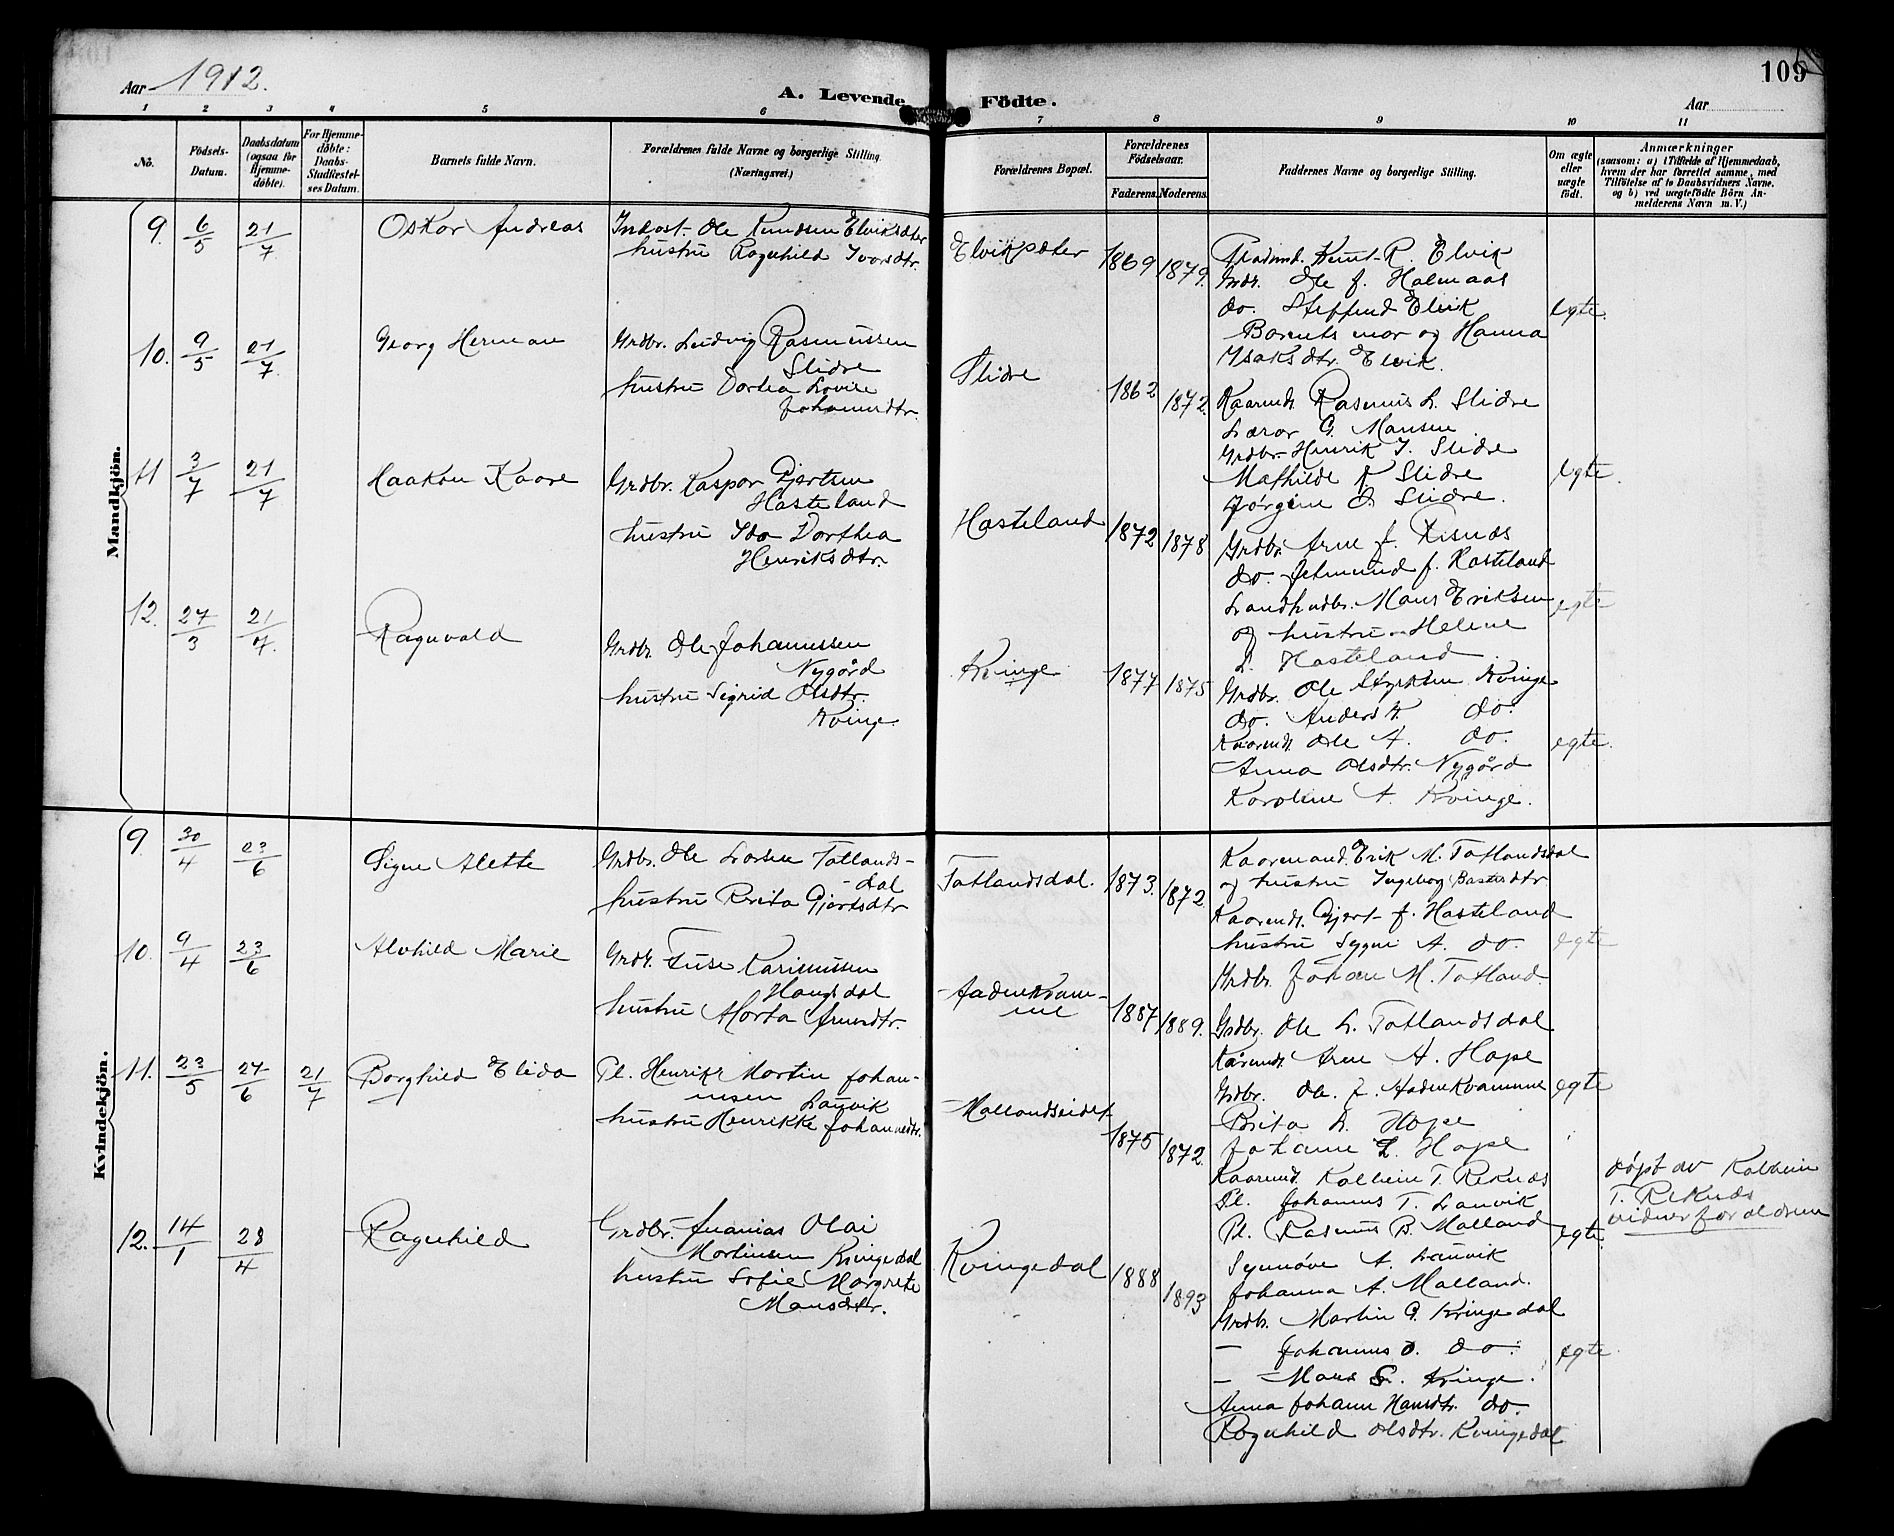 109
Aar 1912.
A. Levende Födte.
Aar
1 2 3 4 5 6 7 8 9 10 11
Nö.
Födsels-Datum.
Daabsdatum (ogsaa for Hjemme-döbte).
For Hjemme-döbte: Daabs-Stadfæstel-ses Datum.
Barnets fulde Navn.
Forældrenes fulde Navne og borgerlige Stilling. (Næringsvei.)
Forældrenes Bopæl.
Forældrenes Födselsaar.
Faderens. Moderens.
Faddernes Navne og borgerlige Stilling.
Om ægte eller uægte födt.
Anmærkninger
(saasom: a) i Tilfælde af Hjemmedaab,
hvem der har forrettet samme, med
Tilföielse af to Daabsvidners Navne,
og b) ved uægtefödte Börn An-
melderens Navn m. V.)
Mandkjön.
9. 6/5 21/7
Oskar Andreas
Ole Knudsen Elviksæter
hustru Ragnhild Ivarsdtr.
Elviksæter
1869 1879.
Knut R. Elvik
Grdbr. Ole J. Halmaas
do. Steffend Elvik
Barnets mor og Hanna
Isaksdtr. Elvik.
egte.
10. 9/5 21/7
Georg Herman
Grdbr. Ludvig Rasmussen
Slidre
hustru Dortea Lovise
Johannesdtr.
Slidre
1862 1872.
Kaarmd. Rasmus L. Slidre
Lærer G. Mansen
Grdbr. Henrik I. Slidre
Mathilde R. Slidre
Jørgine J. Slidre.
egte.
11 3/7 21/7
Haakon Kaare
Grdbr. Kaspar Gjertsen
Hasteland
hustru Ida Dorthea
Henriksdtr.
Hasteland
1872 1878
Grdbr. Arne J. Risnes
do. Jetmund J. Hasteland
Landhndbr. Mans Eriksen
og hustru Helene
L. Hasteland.
egte
12. 27/3 21/4.
Ragnvald
Grdbr. Ole Johannessen
Nygård
hustru Sigrid Olsdtr.
Kvinge.
Kvinge
1877 1875
Grdbr. Ole Styrksen Kvinge
do. Anders A. do.
Kaarmd. Ole A. do.
Anna Olsdtr. Nygård
Karoline A. Kvinge.
egte.
Kvindekjön.
9. 30/4 23/6
Signe Alette
Grdbr. Ole Larsen Totlands-
dal
hustru Brita Gjertsdtr
Totlandsdal.
1873. 1872
Kaarmand. Erik M. Totlandsdal
og hustru Ingeborg Bastesdtr
Kaarmd. Gjert J. Hasteland
hustru Sygni A. do.
Grdbr. Johan M. Totland.
egte
10. 9/4 23/6
Alvhild Marie
Grdbr. Tufe Karinussen
Haugsdal
hustru Marta Arnesdtr.
Aadnekvam-
me
1887 1889.
Grdbr. Ole L. Totlandsdal
Kårmd. Arne A. Hope
Grdbr. Ole J. Aadnekvamme
Brita L. Hope
Johanne L. Hope
egte
11. 23/5 24/6 21/7
Borghild Elida
Pl. Henrik Martin Johan-
nesen Lauvik
hustru Henrikke Johannesdtr.
Mollandseidet
1875 1872.
Kaarmd. Kolbein T. Reknes
Pl. Johannes T. Lauvik
Pl. Rasmus B. Molland
Synnøve A. Lauvik
Johanna A. Molland.
egte.
døpt av Kolbein
T. Reknes
vidner foraldrene
12. 14/1 28/4
Ragnhild
Grdbr. Ananias Olai
Martinsen Kvingedal
hustru Sofie Margrete
Mansdtr.
Kvingedal
1888 1893
Grdbr. Martin O. Kvingedal
— Johannes O. do.
— Mons G. Kvinge.
Anna Johann Hansdtr. do.
Ragnhild Olsdtr. Kvingedal
egte.